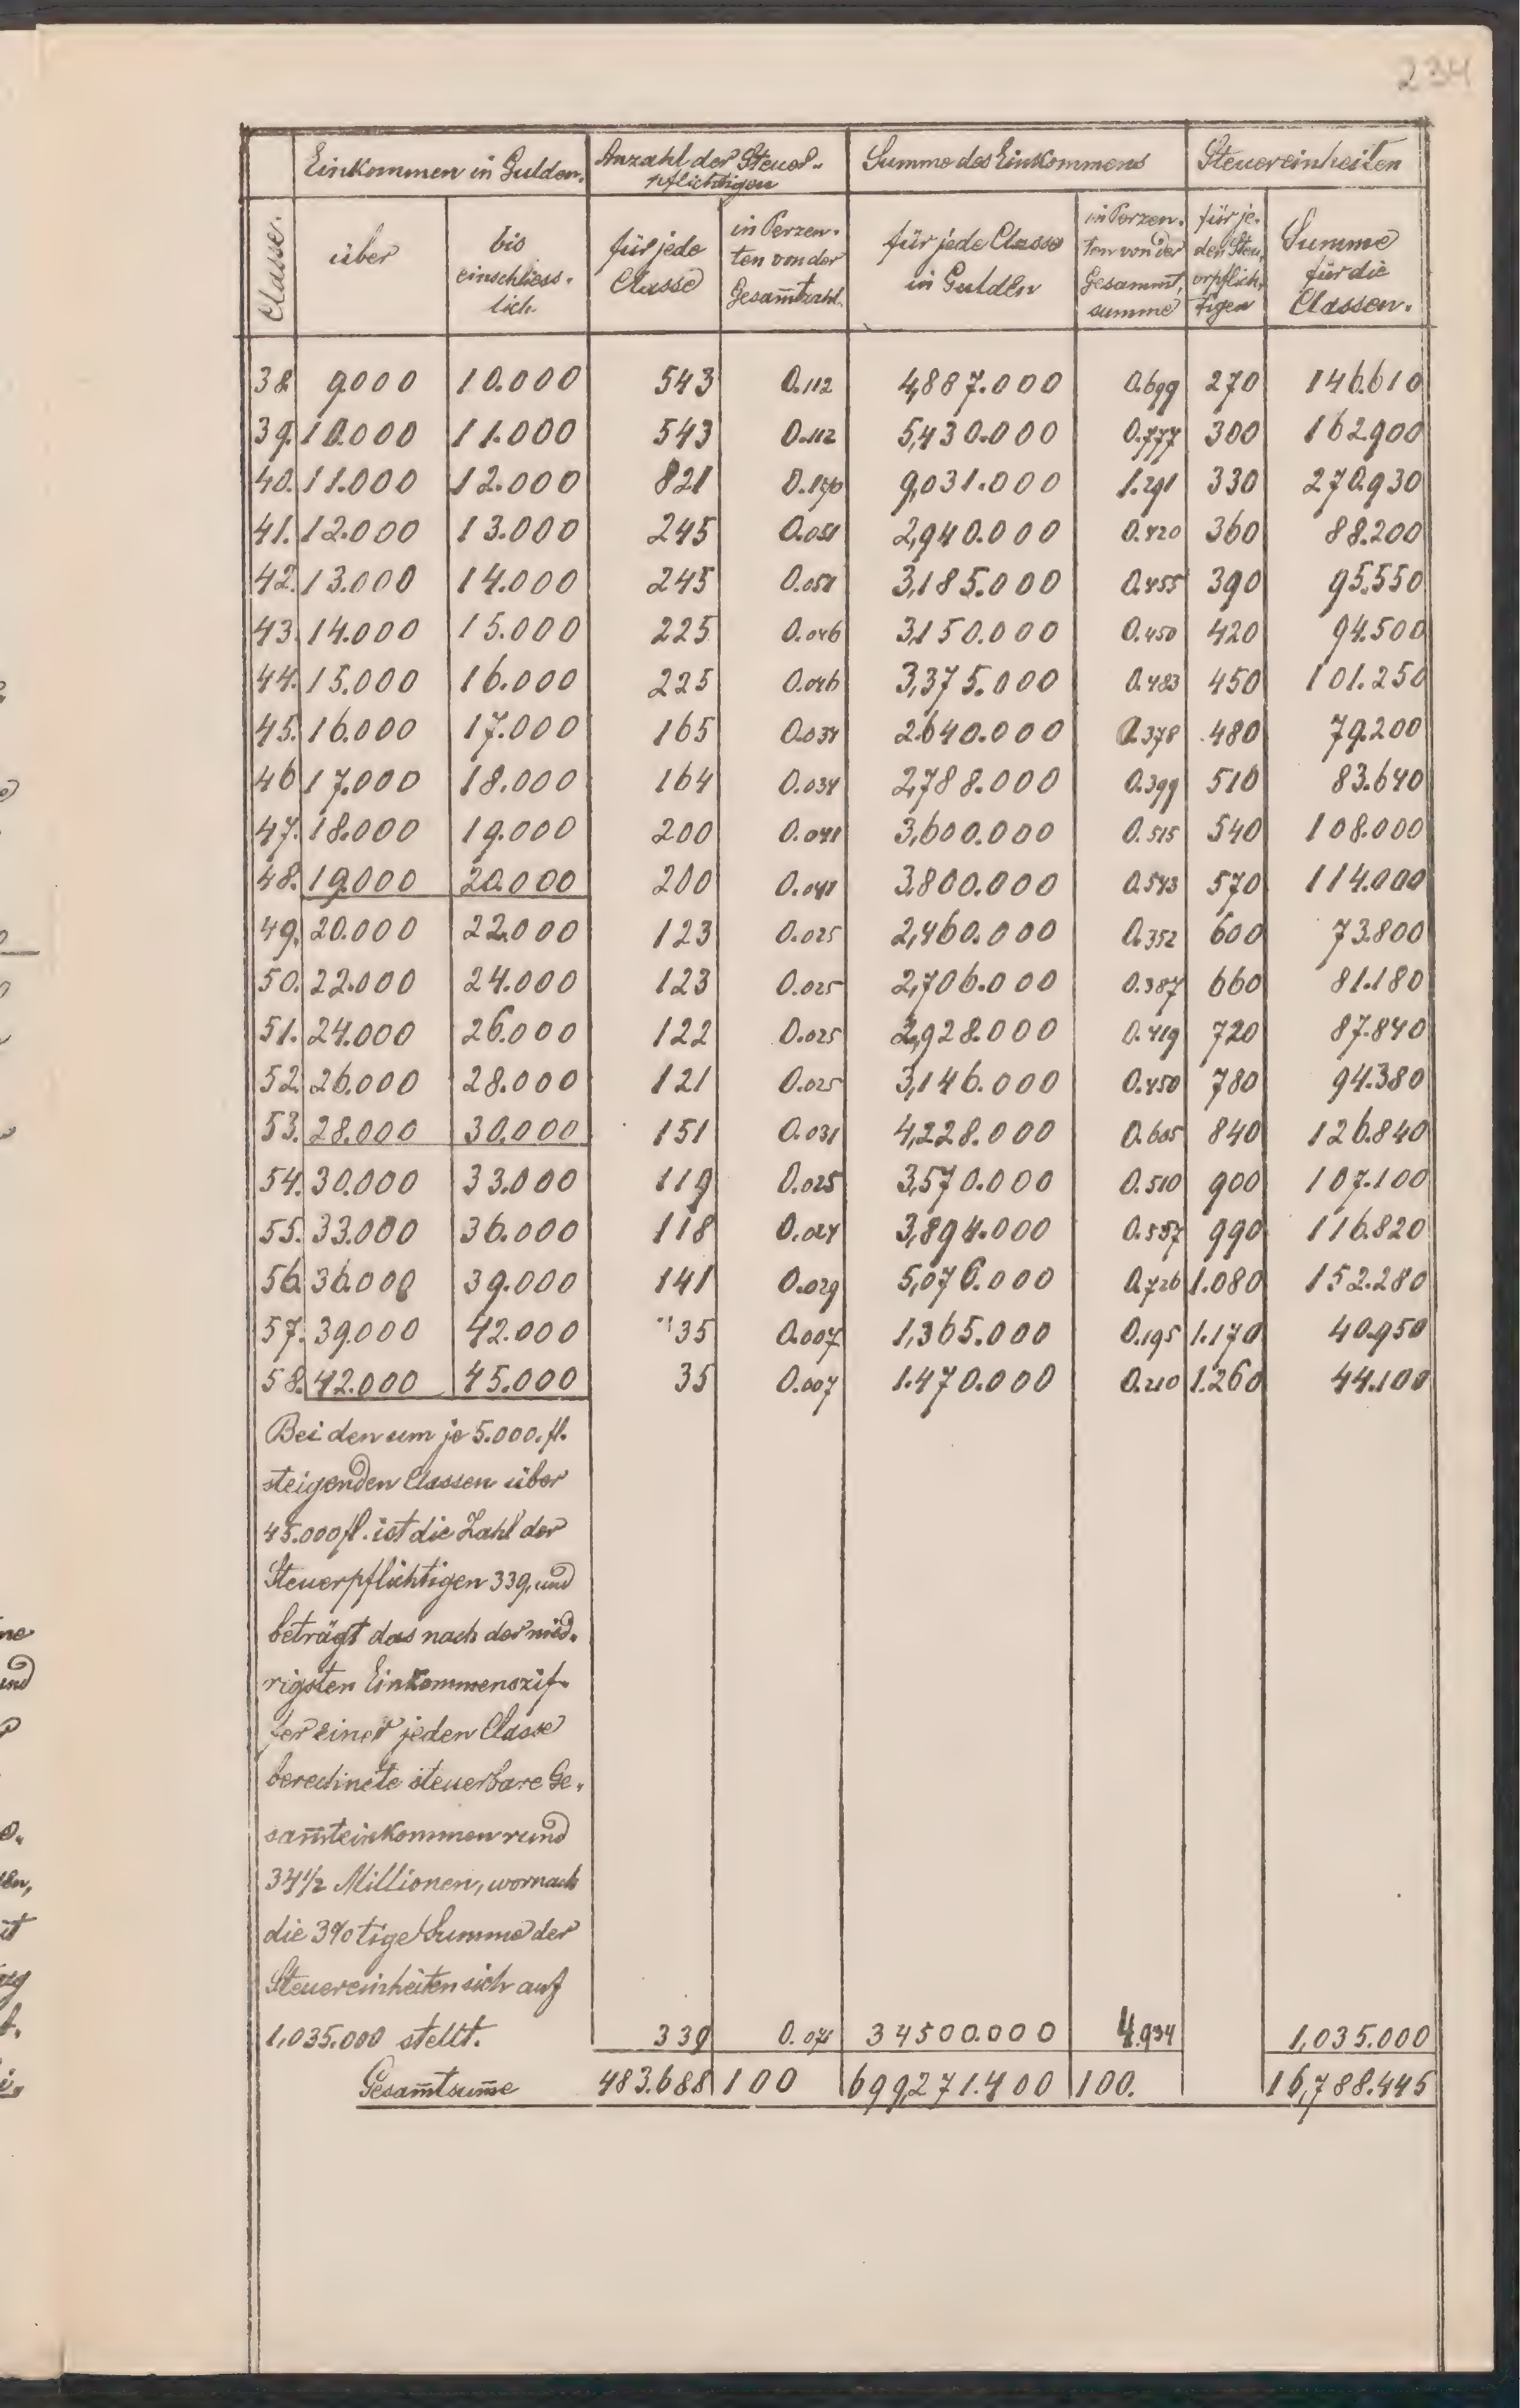 234
Einkommen in Gulden. Anzahl der Steuer- Summe des Einkommens Steuereinheiten
pflichtigen
Classe. über bis einschliess- lich. für jede Classe in Perzen- ten von der Gesam̅tzahl. für jede Classe in Gulden in Perzen- ten von der Gesammt- summe für je- den Steu- erpflich- tigen Summe für die Classen.
38. 9.000 10.000 543 0.112 4,887.000 0.699 270 146.610
39. 10.000 11.000 543 0.112 5,430.000 0.777 300 162.900
40. 11.000 12.000 821 0.170 9,031.000 1.291 330 270.930
41. 12.000 13.000 245 0.051 2,940.000 0.420 360 88.200
42. 13.000 14.000 245 0.051 3,185.000 0.455 390 95.550
43. 14.000 15.000 225 0.046 3,150.000 0.450 420 94.500
44. 15.000 16.000 225 0.046 3,375.000 0.483 450 101.250
45. 16.000 17.000 165 0.034 2.640.000 0.378 480 79.200
46 17.000 18.000 164 0.034 2,788.000 0.399 510 83.640
47. 18.000 19.000 200 0.041 3,600.000 0.515 540 108.000
48. 19.000 20.000 200 0.041 3.800.000 0.543 570 114.000
49. 20.000 22.000 123 0.025 2,460.000 0.352 600 73.800
50. 22.000 24.000 123 0.025 2,706.000 0.387 660 81.180
51. 24.000 26.000 122 0.025 2,928.000 0.419 720 87.840
52. 26.000 28.000 121 0.025 3,146.000 0.450 780 94.380
53. 28.000 30.000 151 0.031 4,228.000 0.605 840 126.840
54. 30.000 33.000 119 0.025 3,570.000 0.510 900 107.100
55. 33.000 36.000 118 0.024 3,894.000 0.557 990 116.820
56. 36.000 39.000 141 0.029 5,076.000 0.726 1.080 152.280
57. 39.000 42.000 35 0.007 1,365.000 0.195 1.170 40.950
58. 42.000 45.000 35 0.007 1.470.000 0.210 1.260 44.100
Bei den um je 5.000.fl.
steigenden Classen über
45.000 fl. ist die Zahl der
Steuerpflichtigen 339, und
beträgt das nach der nied-
rigsten Einkommenszif-
fer einer jeden Classe
berechnete steuerbare Ge-
sam̅teinkommen rund
34 1/2 Millionen, wornach
die 3%tige Summe der
Steuereinheiten sich auf
1,035.000 stellt. 339 34500.000 4.934 1,035.000
Gesam̅tsum̅e 483.688 100 699,271.400 100. 16,788.445